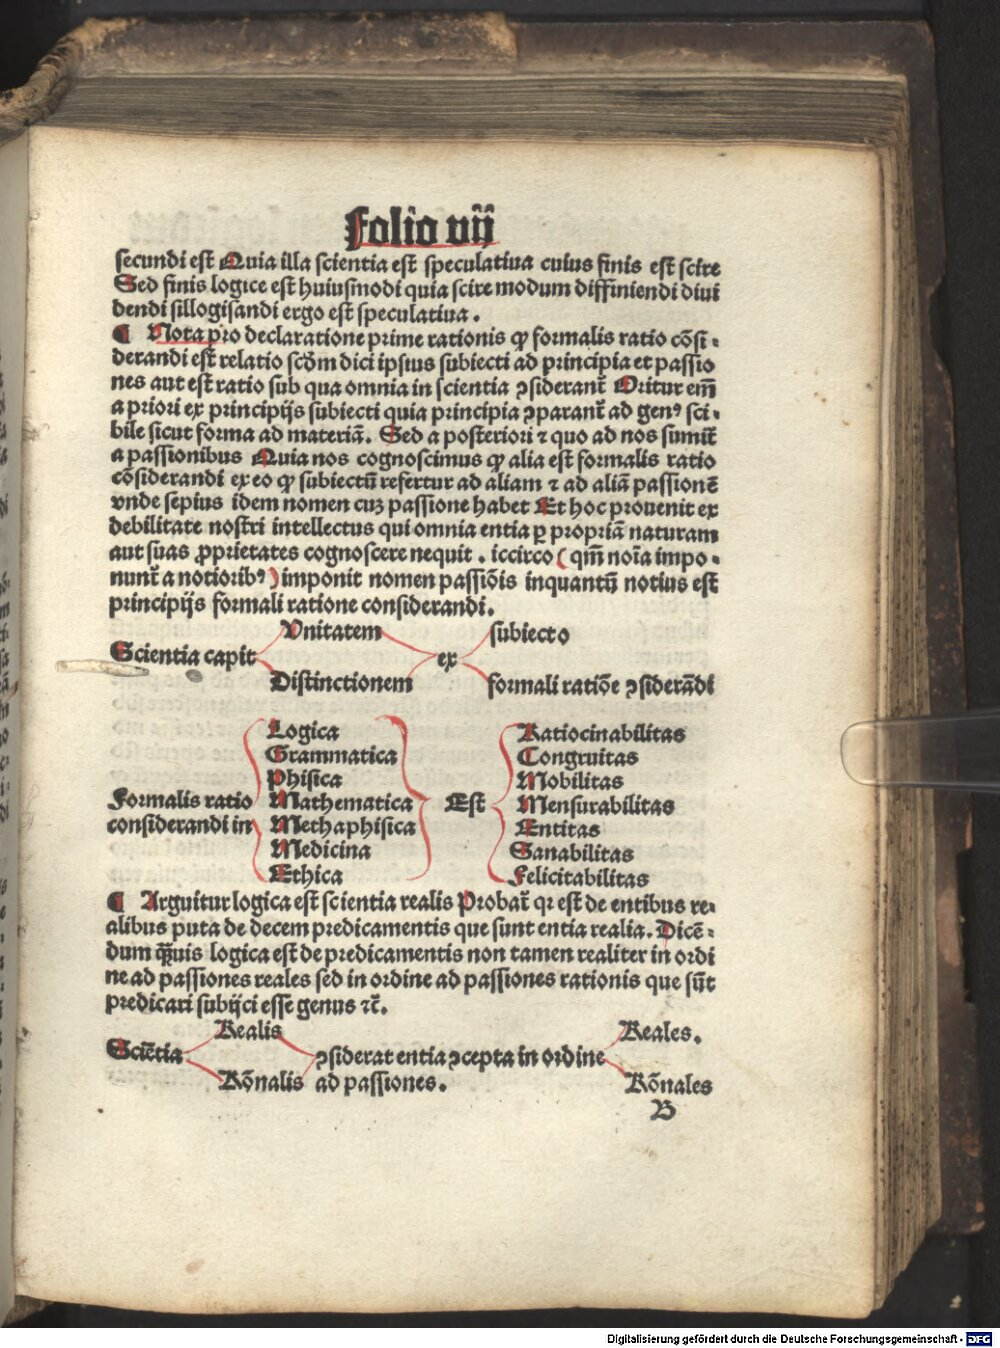 folio vij
secundi est Quia illa scientia est speculatiua cuius finis est scire
Sed finis logice est huiusmodi quia scire modum diffiniendi diui
dendi sillogisandi ergo est speculatiua.
¶ Nota pro declaratione prime rationis ꝙ formalis ratio cōsi-
derandi est relatio scḋm dici ipsius subiecti ad principia et passio
nes aut est ratio sub qua omnia in scientia ↄsiderant᷑ Oritur em̄
a priori ex principijs subiecti quia principia ↄparant᷑ ad genꝰ sci-
bile sicut forma ad materiā. Sed a posteriori ⁊ quo ad nos sumit᷑
a passionibus Quia nos cognoscimus ꝙ alia est formalis ratio
cōsiderandi ex eo ꝙ subiectū refertur ad aliam ⁊ ad aliā passionē
vnde sepius idem nomen cuꝫ passione habet Et hoc prouenit ex
debilitate nostri intellectus qui omnia entia ꝑ propriā naturam
aut suas ꝓprietates cognoscere nequit. iccirco ( qm̄ noīa impo-
nunt᷑ a notioribꝰ ) imponit nomen passiōis inquantū notius est
principijs formali ratione considerandi.
Vnitatem subiecto
Scientia capit ex
Distinctionem formali ratiōe ↄsiderādi
Logica Ratiocinabilitas
Grammatica Congruitas
Phisica Mobilitas
Formalis ratio Mathematica Est Mensurabilitas
considerandi in Methaphisica Entitas
Medicina Sanabilitas
Ethica Felicitabilitas
¶ Arguitur logica est scientia realis Probat᷑ qꝛ est de entibus re-
alibus puta de decem predicamentis que sunt entia realia. Dicē-
dum qāuis logica est de predicamentis non tamen realiter in ordi
ne ad passiones reales sed in ordine ad passiones rationis que sūt
predicari subijci esse genus ⁊c̄.
Realis Reales.
Sciētia ↄsiderat entia ↄcepta in ordine
Rōnalis ad passiones. Rōnales
B
Digitalisierung gefördert durch die Deutsche Forschungsgemeinschaft - DFG